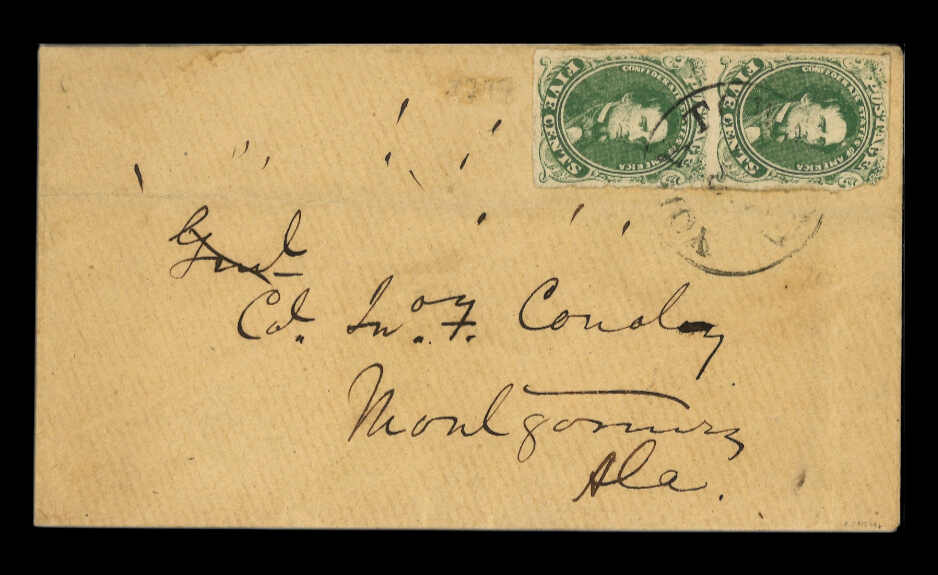 FIVE CENTS
CONFEDERATE STATES OF AMERICA
FIVE CENTS
CONFEDERATE STATES OF AMERICA
Genl
Col. Jno. F. Conoley
Montgomery
Ala.